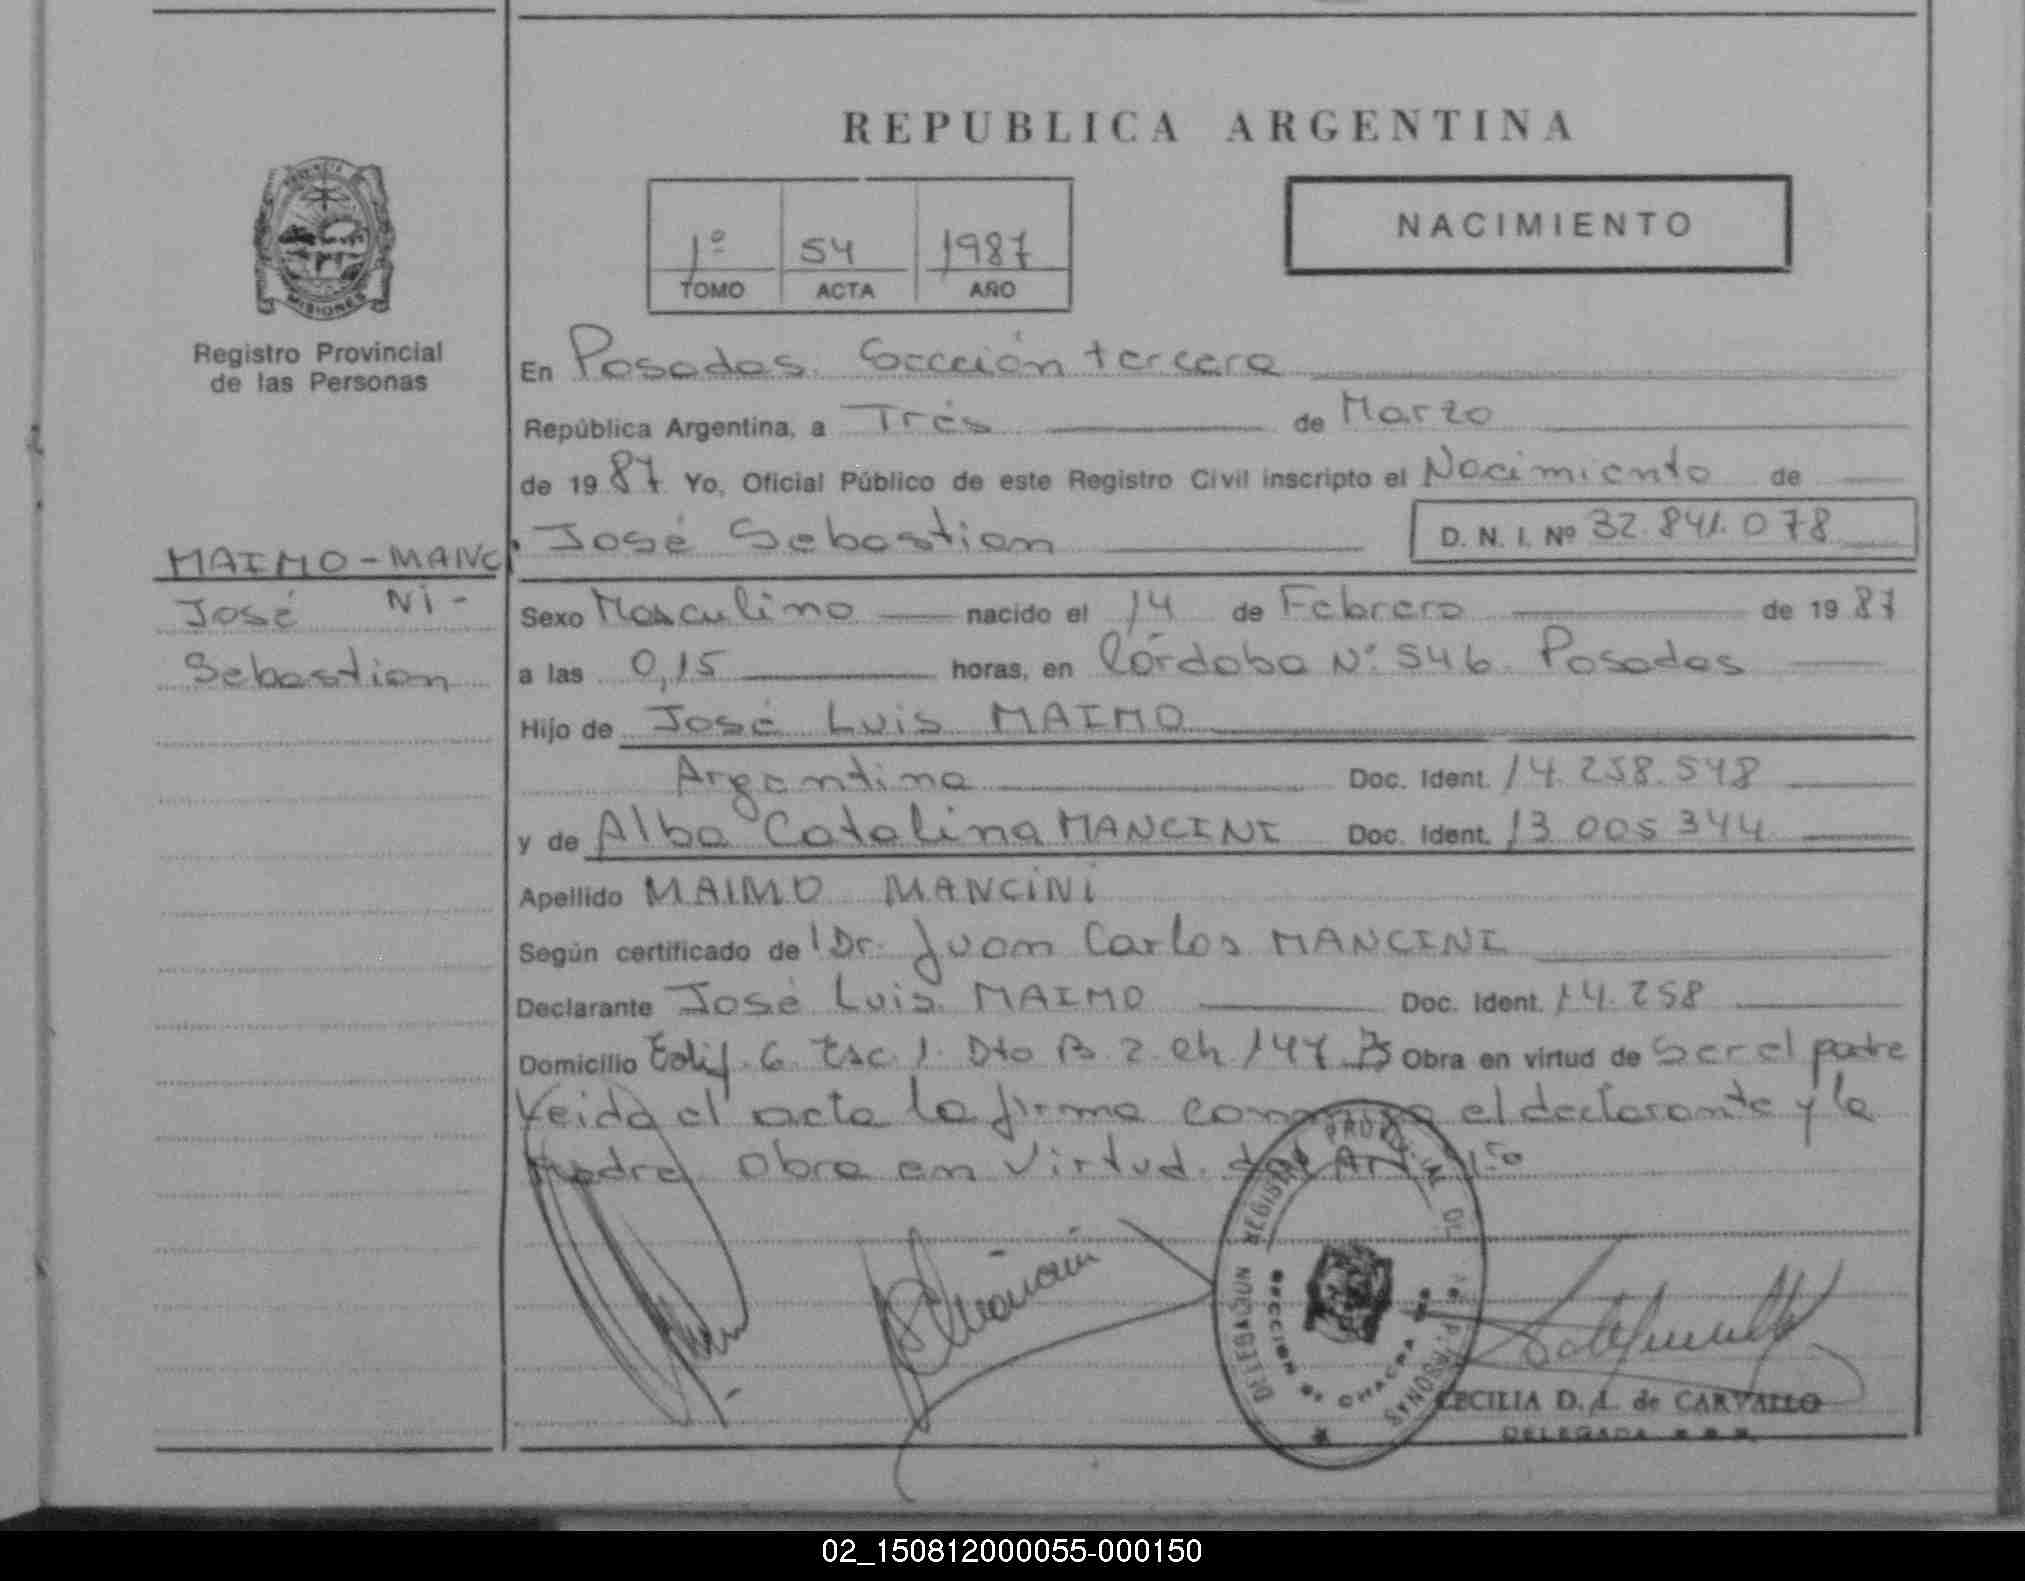 REPUBLICA ARGENTINA
NACIMIENTO
1º 54 1987
TOMO ACTA AÑO
MISIONES
Registro Provincial
de las Personas
En Posadas Sección tercera
República Argentina, a Trés de Marzo
de 1987 Yo, Oficial Público de este Registro Civil inscripto el Nacimiento de
José Sebastian D. N. I. Nº 32.841.078
MAIMO-MANCI
NI-
José
Sebastian
Sexo Masculino nacido el 14 de Febrero de 1987
a las 0,15 horas, en Córdoba Nº 546 Posadas
Hijo de José Luis MAIMO
Argentino Doc. Ident. 14.258.548
y de Alba Catalina MANCINI Doc. Ident. 13.005.344
Apellido MAIMO MANCINI
Según certificado de Dr. Juan Carlos MANCINI
Declarante José Luis MAIMO Doc. Ident. 14.258
Domicilio Edif. 6 Esc. 1 Dto B. 2 Ch. 147 Obra en virtud de Ser el padre
Leida el acta la firma conmigo el declarante y la
Madre Obra en Virtud. del Art.
DELEGACION REGISTRO PROVINCIAL DE LAS PERSONAS
SECCION DE CHACRA
CECILIA D. L. de CARVALLO
DELEGADA
02_150812000055-000150